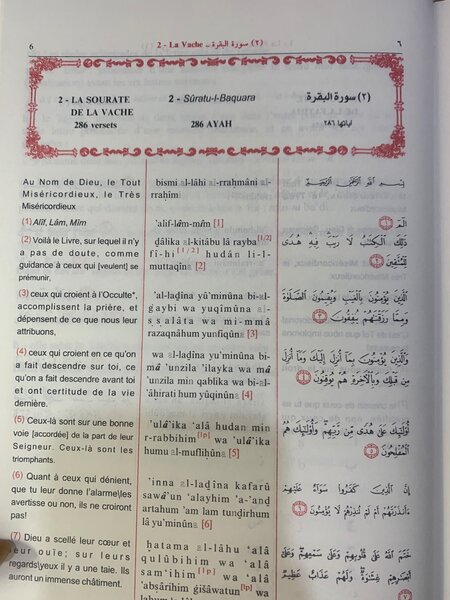 6
2 - La Vache - (٢) سورة البقرة
٦
2 - LA SOURATE
DE LA VACHE
286 versets
2 - Sûratu-l-Baquara
286 AYAH
(٢) سورة البقرة
آياتها ٢٨٦
Au Nom de Dieu, le Tout
Miséricordieux, le Très
Miséricordieux
(1) Alif, Lâm, Mîm
(2) Voilà le Livre, sur lequel il n'y
a pas de doute, comme
guidance à ceux qui [veulent] se
prémunir.
(3) ceux qui croient à l'Occulte*,
accomplissent la prière, et
dépensent de ce que nous leur
attribuons,
(4) ceux qui croient en ce qu'on
a fait descendre sur toi, ce
qu'on a fait descendre avant toi
et ont certitude de la vie
dernière.
(5) Ceux-là sont sur une bonne
voie [accordée] de la part de leur
Seigneur. Ceux-là sont les
triomphants.
(6) Quant à ceux qui dénient,
que tu leur donne l'alarme\les
avertisse ou non, ils ne croiront
pas!
(7) Dieu a scellé leur cœur et
leur ouïe; sur leurs
regards\yeux il y a une taie. Ils
auront un immense châtiment.
bismi al-lâhi ar-raḥmâni ar-
raḥîm
'alif-lâm-mîm [1]
ḏâlika al-kitâbu lâ rayba[1/2]
fî-hi [1/2] hudán li-l-
muttaqîna [2]
'al-laḏîna yû'minûna bi-al-
ġaybi wa yuqîmûna aṣ-
ṣalâta wa mi-mmâ
razaqnâhum yunfiqûna [3]
wa al-laḏîna yu'minûna bi-
mâ 'unzila 'ilayka wa mâ
'unzila min qablika wa bi-al-
'âḫirati hum yûqinûna [4]
'ulâ'ika 'alâ hudan min
r-rabbihim [lp] wa 'ulâ'ika
humu al-mufliḥûna [5]
'inna al-laḏîna kafarû
sawâ'un 'alayhim 'a-'anḏ
artahum 'am lam tunḏirhum
lâ yu'minûna [6]
ḫatama al-lâhu 'alâ
qulûbihim wa 'alâ
sam'ihim [lp] wa 'alâ
'abṣârihim ġišâwatun [lp]
بِسْمِ اللَّهِ الرَّحْمَٰنِ الرَّحِيمِ
الٓمٓ ١
ذَٰلِكَ الْكِتَابُ لَا رَيْبَ فِيهِ هُدًى
لِّلْمُتَّقِينَ ٢
الَّذِينَ يُؤْمِنُونَ بِالْغَيْبِ وَيُقِيمُونَ الصَّلَوٰةَ
وَمِمَّا رَزَقْنَٰهُمْ يُنفِقُونَ ٣
وَالَّذِينَ يُؤْمِنُونَ بِمَآ أُنزِلَ إِلَيْكَ وَمَآ أُنزِلَ
مِن قَبْلِكَ وَبِالْآخِرَةِ هُمْ يُوقِنُونَ ٤
أُو۟لَٰٓئِكَ عَلَىٰ هُدًى مِّن رَّبِّهِمْ وَأُو۟لَٰٓئِكَ هُمُ
الْمُفْلِحُونَ ٥
إِنَّ الَّذِينَ كَفَرُوا سَوَآءٌ عَلَيْهِمْ
ءَأَنذَرْتَهُمْ أَمْ لَمْ تُنذِرْهُمْ لَا يُؤْمِنُونَ ٦
خَتَمَ اللَّهُ عَلَىٰ قُلُوبِهِمْ وَعَلَىٰ سَمْعِهِمْ وَعَلَىٰٓ
أَبْصَٰرِهِمْ غِشَٰوَةٌ وَلَهُمْ عَذَابٌ عَظِيمٌ